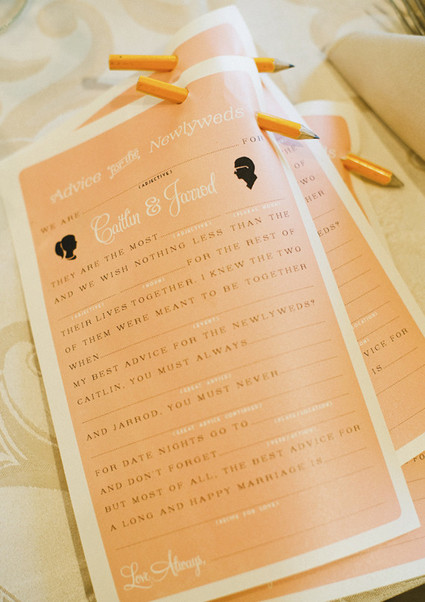 Advice for the Newlyweds
WE ARE FOR
(ADJECTIVE)
Caitlin & Jarrod
THEY ARE THE MOST
(ADJECTIVE) (PLURAL NOUN)
AND WE WISH NOTHING LESS THAN THE
FOR THE REST OF
(ADJECTIVE) (NOUN)
THEIR LIVES TOGETHER. I KNEW THE TWO
OF THEM WERE MEANT TO BE TOGETHER
WHEN
(EVENT)
MY BEST ADVICE FOR THE NEWLYWEDS?
CAITLIN, YOU MUST ALWAYS
(GREAT ADVICE)
AND JARROD, YOU MUST NEVER
(GREAT ADVICE CONTINUED)
FOR DATE NIGHTS GO TO
(PLACE/VACATION)
AND DON'T FORGET
BUT MOST OF ALL, THE BEST ADVICE FOR
A LONG AND HAPPY MARRIAGE IS
Love Always,
FOR
THE
THE TWO
TOGETHER
WEDS?
VICE FOR
IS